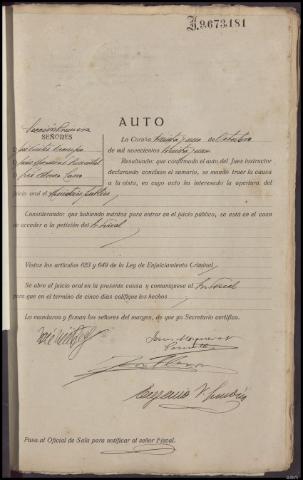 J.9.673.181
AUTO
Sección Primera
SEÑORES
La Coruña treinta y uno de Octubre
de mil novecientos treinta y uno
Resultando: que confirmado el auto del Juez Instructor
declarando concluso el sumario, se mandó traer la causa
a la vista, en cuyo acto ha interesado la apertura del
juicio oral el Ministerio Público
Considerando: que habiendo méritos para entrar en el juicio público, se está en el caso
de acceder a la petición del Fiscal
Vistos los artículos 623 y 649 de la Ley de Enjuiciamiento Criminal;
Se abre el juicio oral en la presente causa y comuníquese al Fiscal
para que en el término de cinco días califique los hechos
Lo mandaron y firman los señores del margen, de que yo Secretario certifico.
Pasa al Oficial de Sala para notificar al señor Fiscal.